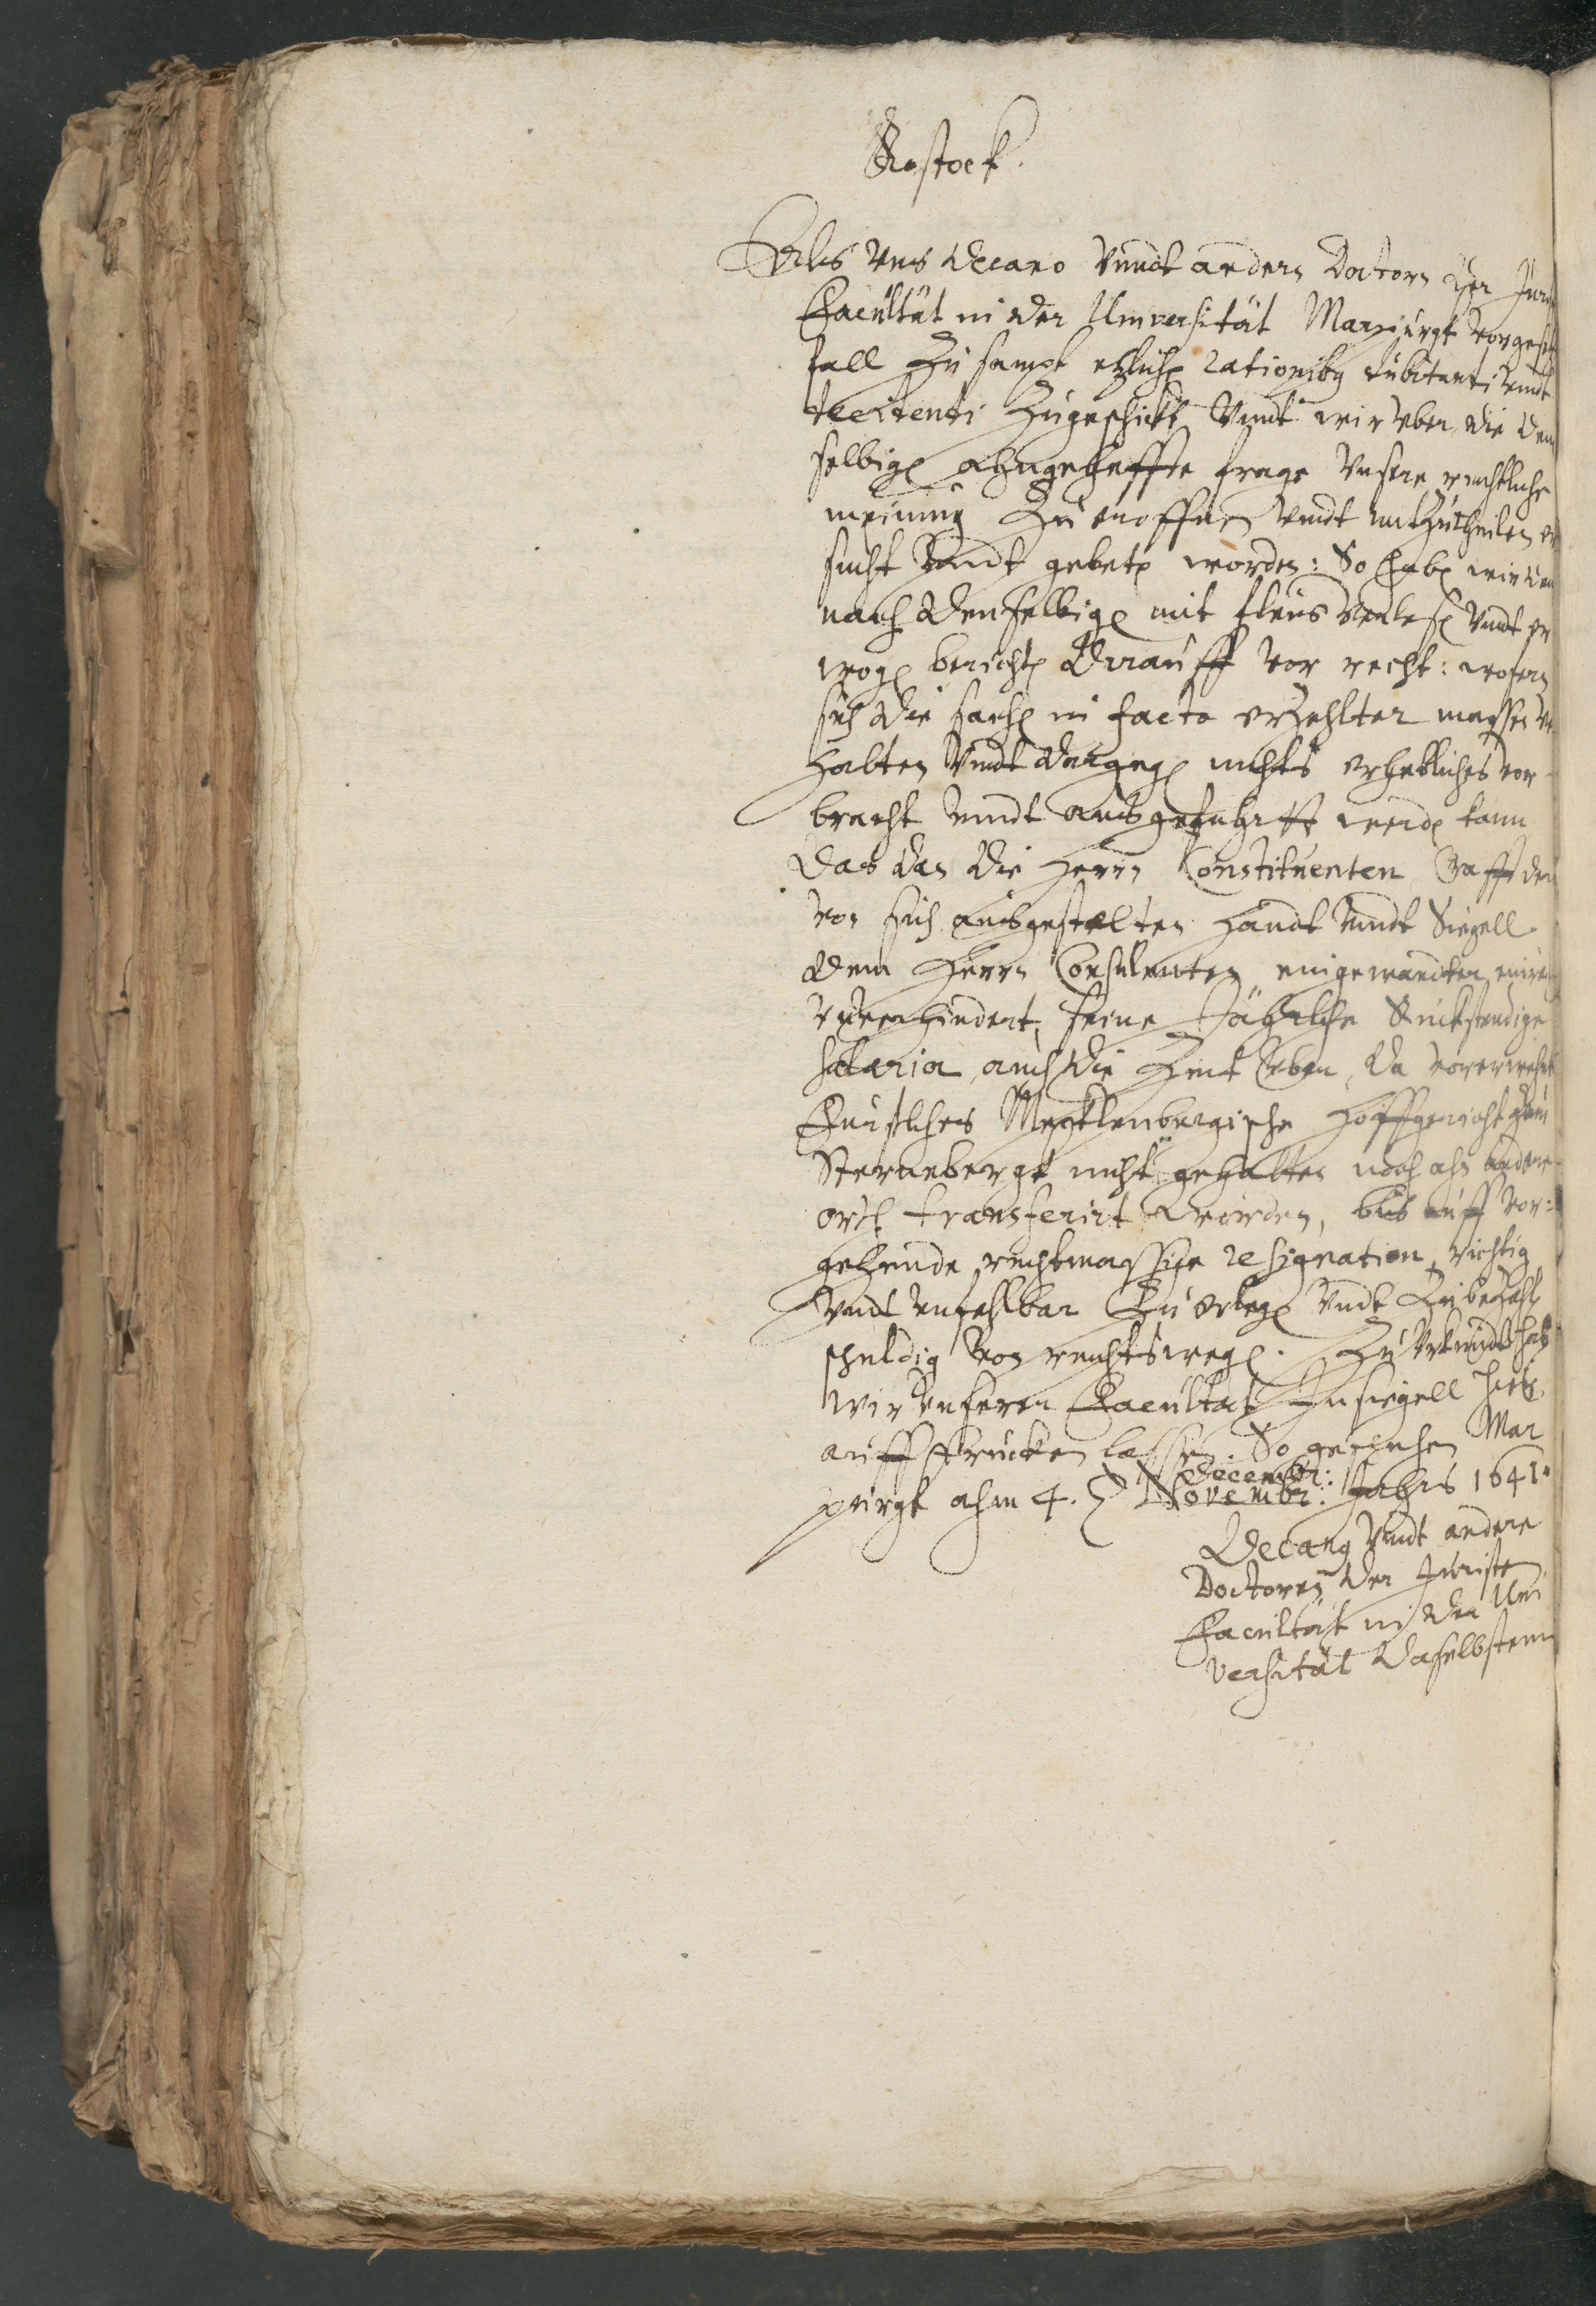 Rostock.
Als Uns Decano Vnndt andern Doctorn der Juris
Facultät in der Universität Marpurgk vorgesetzt
fall Zu sampt etzlichen rationibus dubitandi Vnndt
decidendi Zugeschickt Vnndt wir vber die dem
selbigen ahngeheffte frage Vnsere rechtliche
meinung Zu eroffnen Vnndt mitZutheilen er
sucht Vnndt gebeten worden: So haben wir dem
nach denselbigen mit fleis verlesen Vnndt er
wogen berichten darauff vor recht: wofern
sich die sachen in facto erZehlter massen ver
halten Vnndt dargegen nichts erhebliches vor
bracht Vnndt ausgefuhrtt werden kann
Das dan die Herrn Constituenten Crafft der
von sich ausgestelten handt Vnndt Siegell
dem Herrn Consulenten eingewandter einrede
Vnverhindert, seine Jährliche Rückstendige
salaria, auch die Zeit vber, da vorerwehnt
Furstliches Mecklenburgische Hoffgericht Zum
Sternebergk nicht gehalten noch ahn andere
orth transferirt worden, bis auff vor:
gehende rechtmassige resignation, richtig
Vnndt unfehlbar Zu erlegen Vnndt Zu beZahlen
schuldig von rechtswegen. Zu Vrkundt haben
wir Vnseren Facultat Insiegell hieb
auff drucken lassen. So geschehen Mar
decembr:
purgk ahm 4. Novembr: Jahrs 1641.
Decanus Vnndt andere
Doctoren der Juristen
Facultät in der Uni
versität daselbstenn